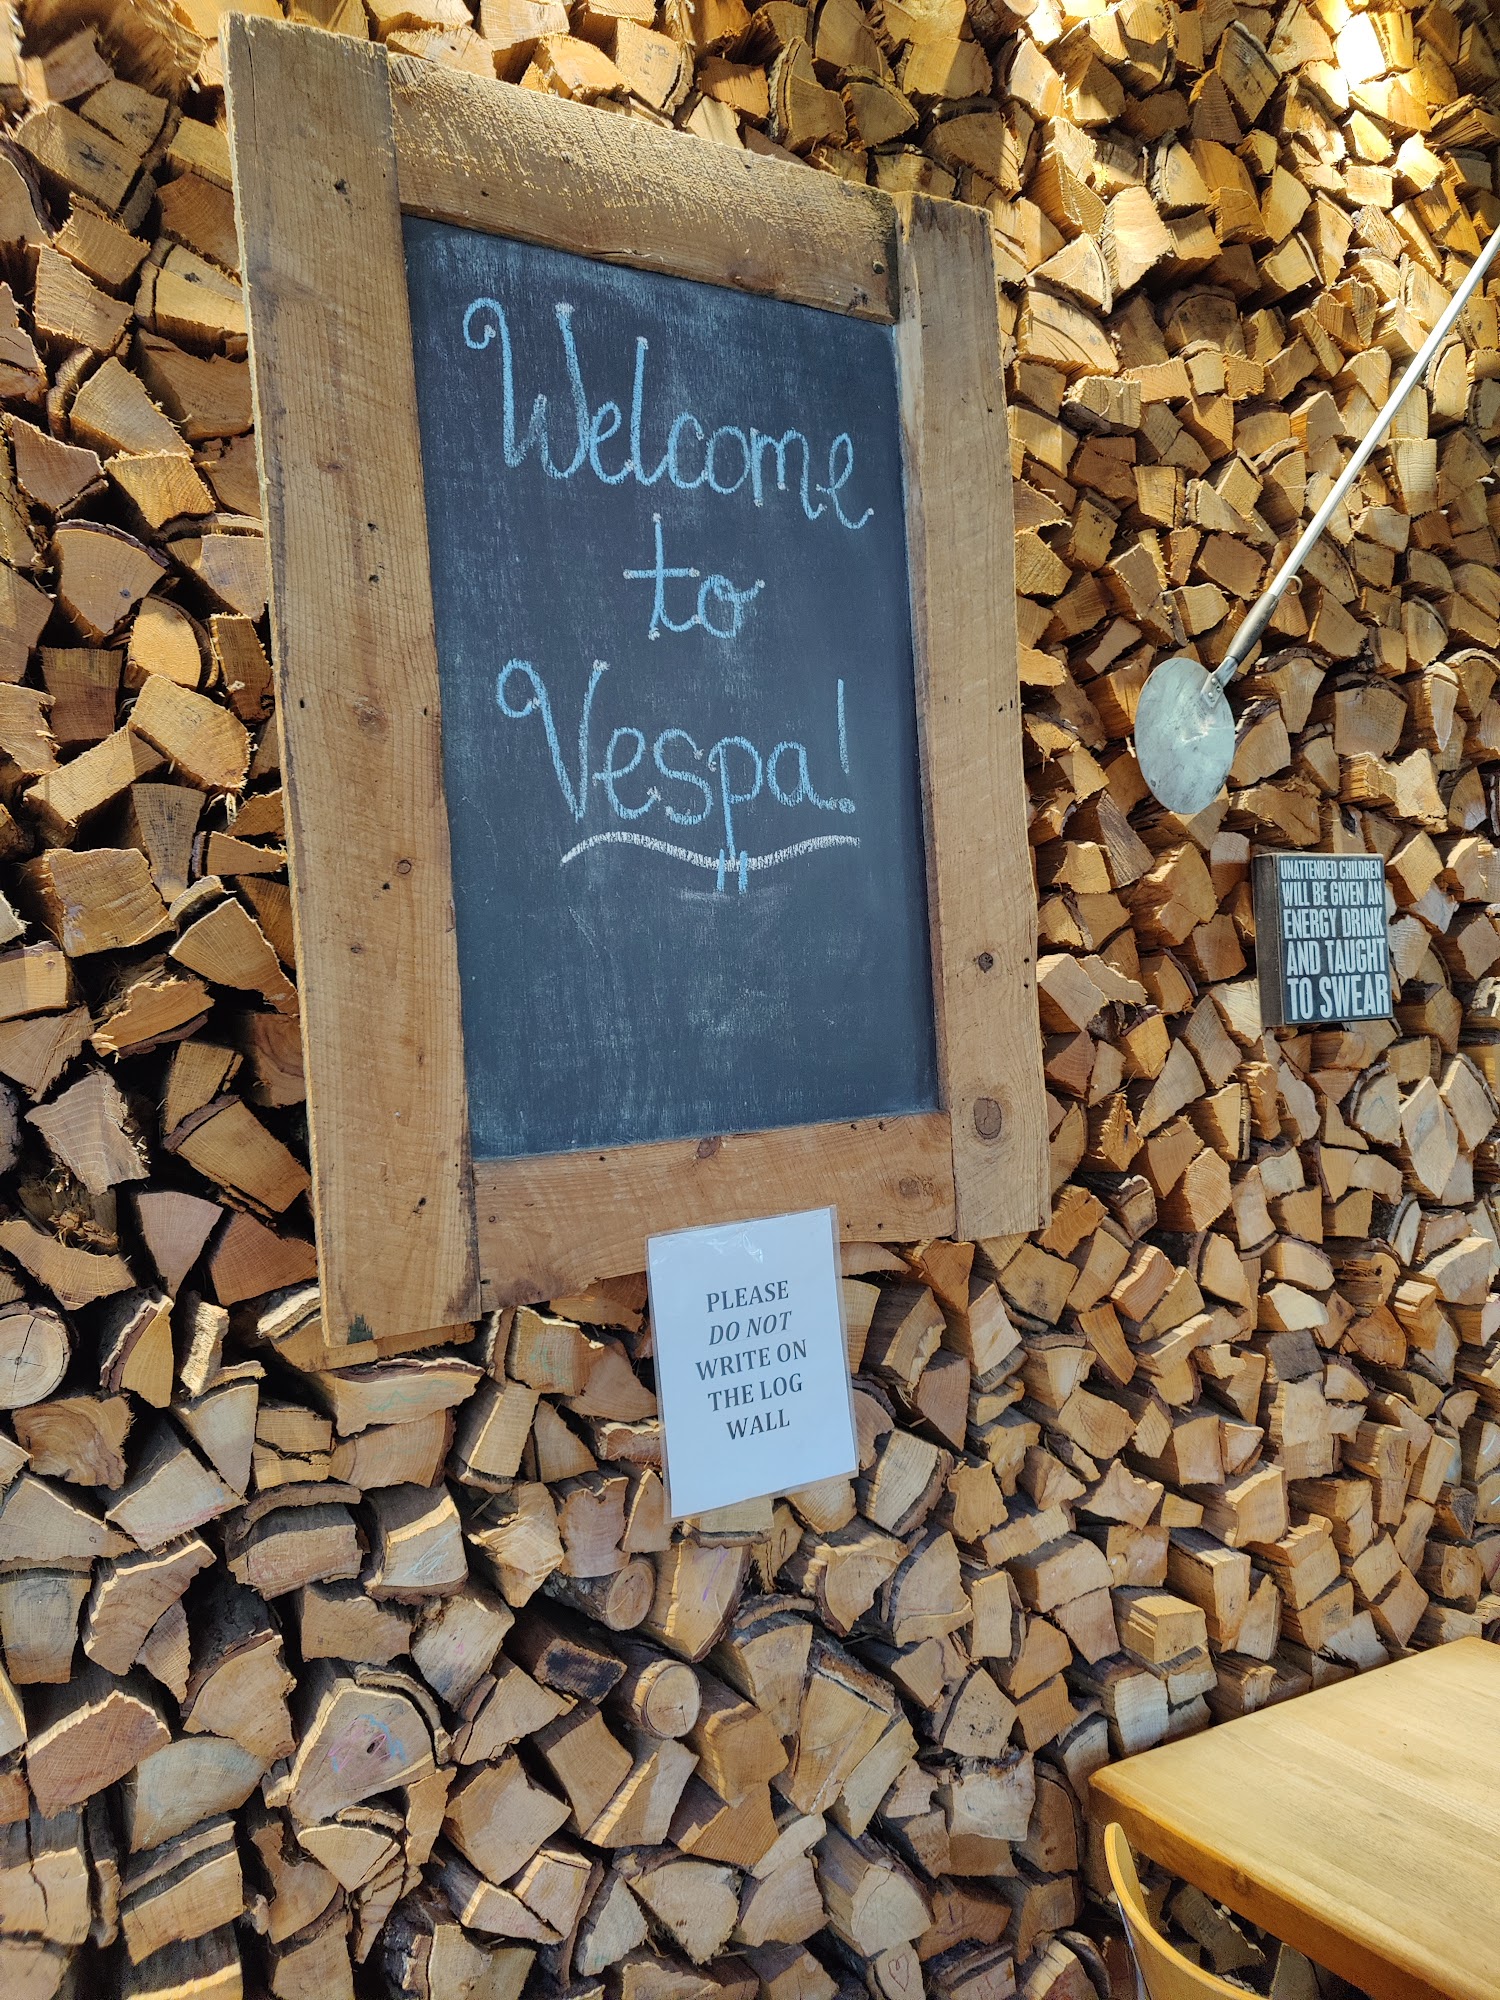 Welcome
to
Vespa!
UNATTENDED CHILDREN
WILL BE GIVEN AN
ENERGY DRINK
AND TAUGHT
TO SWEAR
PLEASE
DO NOT
WRITE ON
THE LOG
WALL